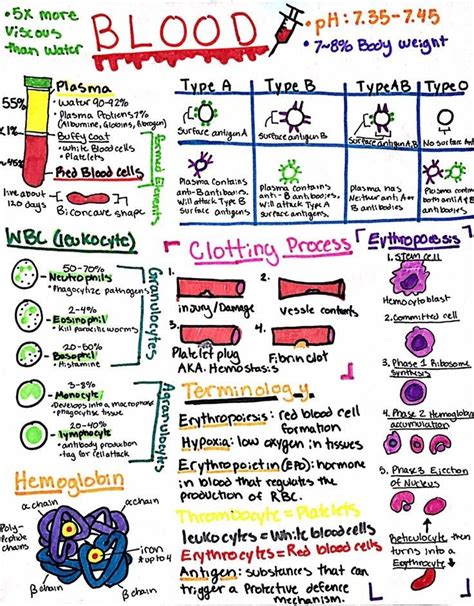 • 5x more
Viscous
than water
BLOOD
• pH: 7.35-7.45
• 7~8% Body weight
55%
<1%
~45%
Plasma
• Water 90-92%
• Plasma Protiens 7%
(Albumine, Globins, fibrogen)
Buffy Coat
• White Blood cells
• Platelets
Red Blood cells
Formed Elements
live about
120 days
Biconcave shape
Type A
Type B
Type AB
Type O
Surface antigen A
Surface antigen B
Surface antigen A,B
No surface
Plasma contains
anti-B antibodies.
will attack Type B
Surface antigens.
Plasma contains
anti-
antibodies,
will attack Type
surface antigens.
Plasma has
Neither anti A or
B antibodies
Plasma
both anti A and
B antibodies
WBC (leukocyte)
50-70%
Neutrophils
• Phagocytize pathogens
2-4%
Eosinophil
• Kill parasitic worms
Basophil
• Histamine
Granulocytes
3-8%
Monocyte
• Develops into a macrophage
phagocytise tissue
20-40%
lymphocyte
• antibody production
• tag for cell attack
Agranulocytes
Clotting Process
1.
injury/Damage
2.
Vessle contracts
3.
Platelet plug
AKA. Hemostasis
4.
Fibrin clot
Erythropoesis
1. Stem cell
Hemocytoblast
2. Committed cell
3. Phase 1 Ribosome
synthesis
4. Phase 2 Hemoglobin
accumulation
5. Phase 3 Ejection
of Nucleus
Reticulocyte then
turns into
a Erythrocyte
Terminology
Erythropoisis: red blood cell
formation
Hypoxia: low oxygen in tissues
Erythropoietin (EPO): hormone
in blood that regulates the
production of RBC.
Thrombocyte = Platelets
leukocytes = White blood cells
Erythrocytes = Red blood cells
Antigen: substances that can
trigger a Protective defence
mechanism.
Hemoglobin
α chain
α chain
Poly-
peptide
chains
iron
↑ up to 4
β chain
β chain